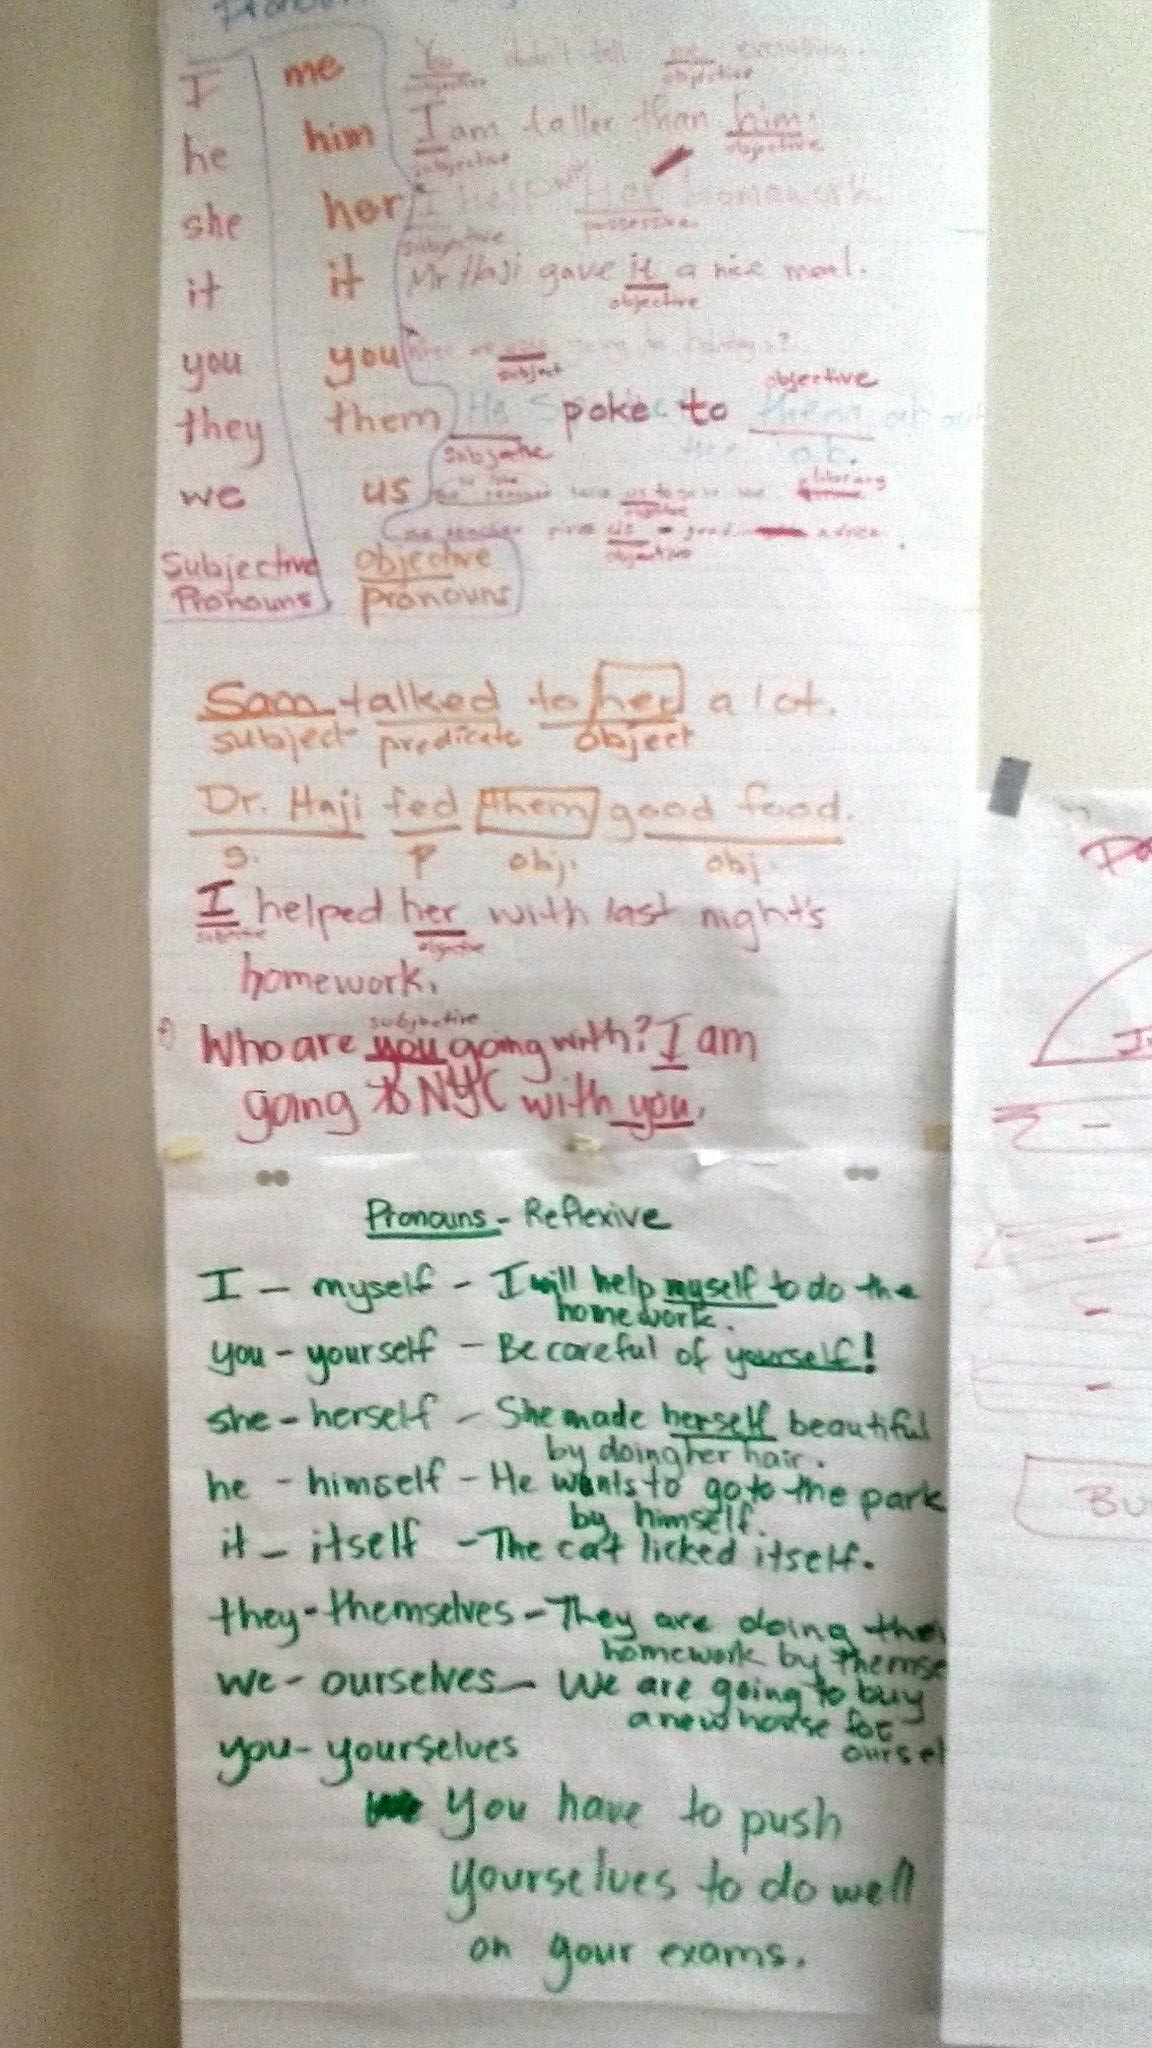 I me You don't tell me everything.
subjective objective
he him I am taller than him.
subjective objective
she her I Help with Her homework.
subjective possessive
it it Mr Haji gave it a nice meal.
objective
you you
subject
objective
they them He Spoke to them about
subjective the job.
we us library
the teacher gives us good advice.
objective
Subjective objective
Pronouns pronouns
Sam talked to her a lot.
subject predicate object
Dr. Haji fed them good food.
S. P obj. obj.
I helped her with last night's
subjective objective
homework.
subjective
Who are you going with? I am
going to NYC with you.
Pronouns - Reflexive
I - myself - I will help myself to do the
homework.
you - yourself - Be careful of yourself!
she - herself - She made herself beautiful
by doing her hair.
he - himself - He wants to go to the park
by himself.
it - itself - The cat licked itself.
they - themselves - They are doing thei
homework by themse
we - ourselves - We are going to buy
a new house for
oursel
you - yourselves
You have to push
yourselves to do well
on your exams.